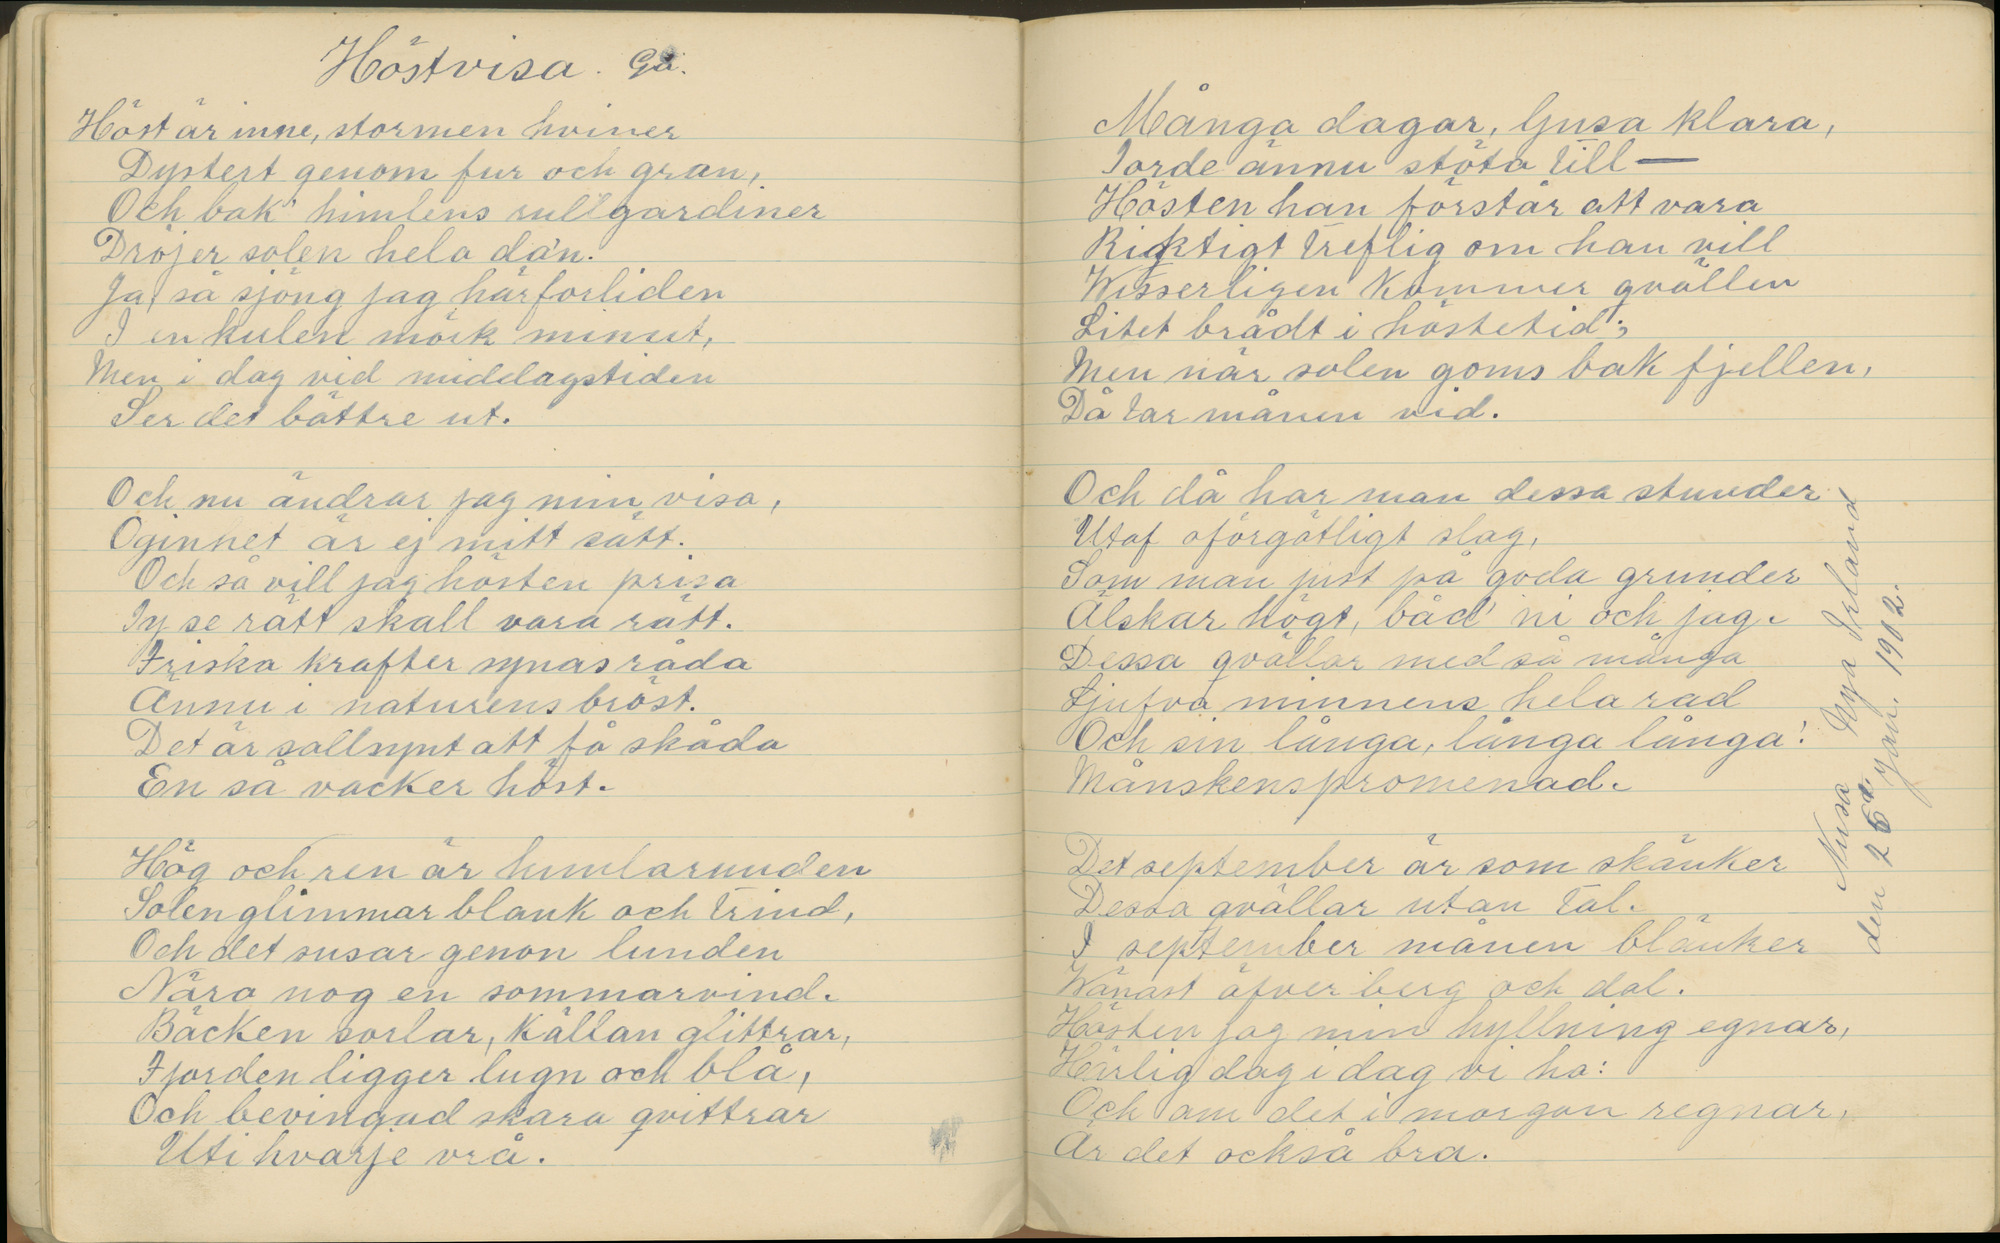 Höstvisa. Gö.
Höst är inne, stormen hviner
Dystert genom fur och gran,
Och bak' himlens rullgardiner
Dröjer solen hela da'n.
Ja, så sjöng jag härforliden
I en kulen mörk minut,
Men i dag vid middagstiden
Ser det bättre ut.
Och nu ändrar jag min visa,
Oginnet är ej mitt sätt.
Och så vill jag hösten prisa
Ty se rätt skall vara rätt.
Friska krafter synas råda
Ännu i naturens bröst.
Det är sällsynt att få skåda
En så vacker höst.
Hög och ren är himlarunden
Solen glimmar blank och trind,
Och det susar genon lunden
Nära nog en sommarvind.
Bäcken sorlar, källan glittrar,
Fjorden ligger lugn och blå,
Och bevingad skara qvittrar
Uti hvarje vrå.
Många dagar, ljusa klara,
Torde ännu stöta till —
Hösten han förstår att vara
Riktigt treflig om han vill
Wisserligen kommer qvällen
Litet brådt i höstetid;
Men när solen göms bak fjellen,
Då tar månen vid.
Och då har man dessa stunder
Utaf oförgätligt slag,
Som man just på goda grunder
Älskar högt, båd' ni och jag.
Dessa qvällar med så många
Ljufva minnens hela rad
Och sin långa, långa långa!
Månskenspromenad.
Det september är som skänker
Dessa qvällar utan tal.
I september månen blänker
Wänast öfver berg och dal.
Hösten jag min hyllning egnar,
Härlig dag i dag vi ha:
Och om det i morgon regnar,
Är det också bra.
Nusa
den 25d Jan. 1902.